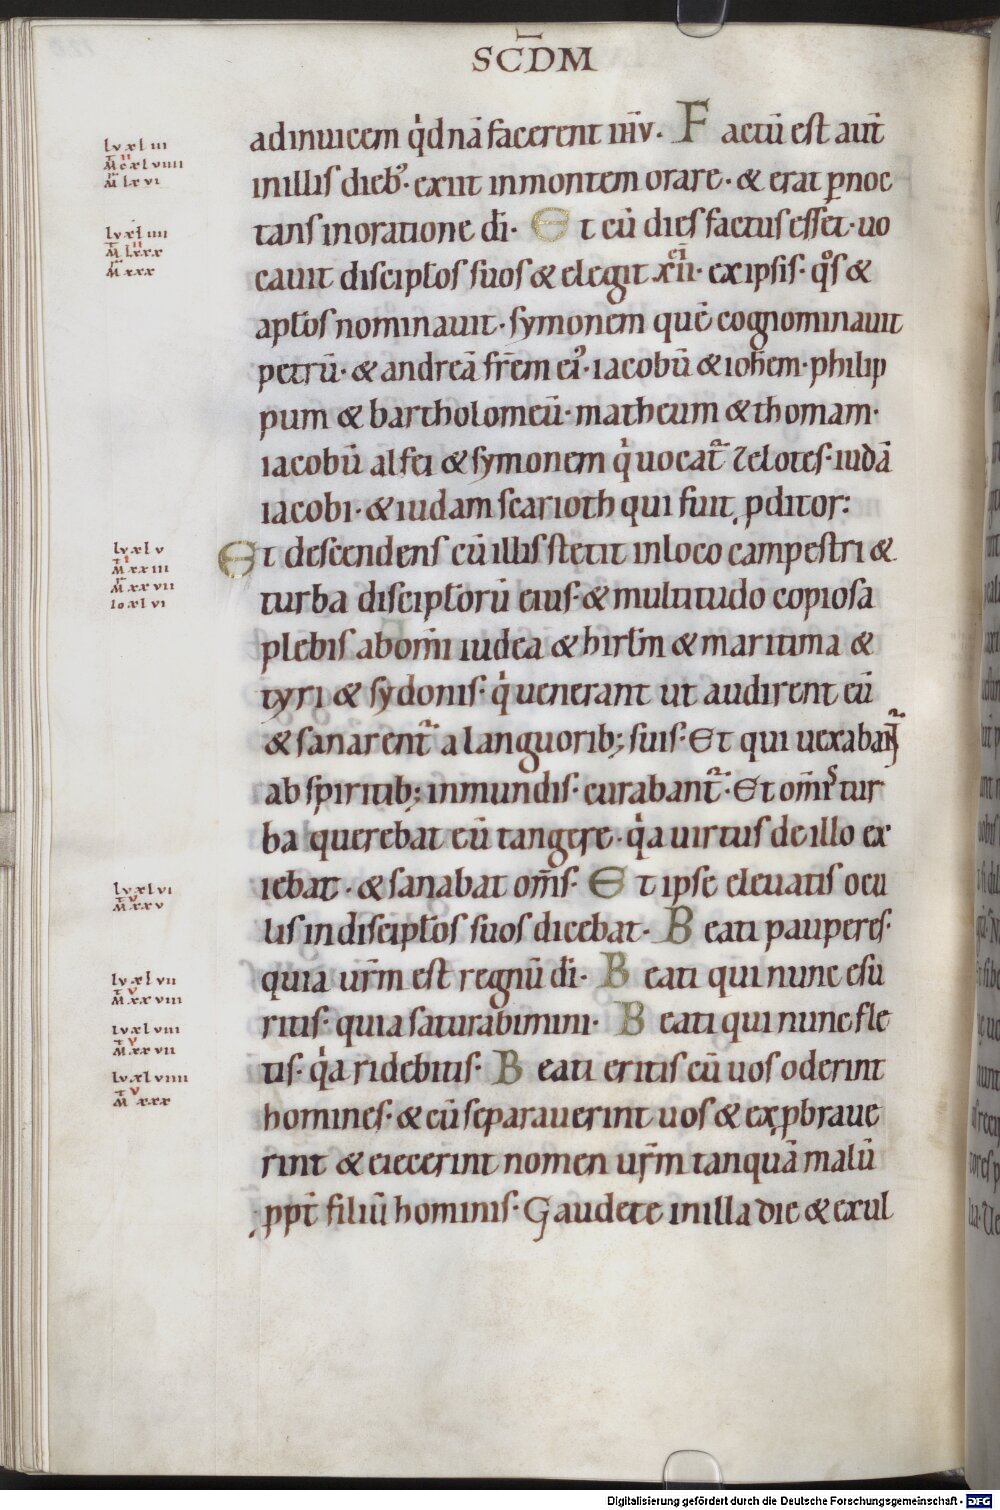 SCD̄M
ad inuicem qͥdnā facerent ih̄v. Factū est aut̄
in illis dieb⁹. exiit in montem orare. & erat p̱noc
tans in oratione dī. Et cū dies factus esset. uo
cauit discipl̄os suos & elegit xii. ex ipsis. qͦs &
apl̄os nominauit. symonem quē cognominauit
petrū. & andreā fr̄em ei⁹. iacobū & ioh̄em. philip
pum & bartholomeū. matheum & thomam.
iacobū alfei & symonem qͥ uocat᷑ zelotes. iudā
iacobi. & iudam scarioth qui fuit ꝓditor:
Et descendens cū illis stetit in loco campestri &
turba discipl̄orū eius. & multitudo copiosa
plebis ab om̄i iudea & hirl̄m & maritima &
tyri & sydonis. qͥ uenerant ut audirent eū
& sanarent᷑ a languorib; suis. Et qui uexabant᷑
ab spiritib; inmundis. curabant᷑. Et om̄is tur
ba querebat eū tangere. qͥa uirtus de illo ex
iebat. & sanabat om̄s. Et ipse eleuatis ocu
lis in discipl̄os suos dicebat. Beati pauperes.
quia ur̄m est regnū dī. Beati qui nunc esu
ritis. quia saturabimini. Beati qui nunc fle
tis. qͥa ridebitis. Beati eritis cū uos oderint
homines. & cū separauerint uos & exꝓbraue
rint & eiecerint nomen ur̄m tanquā malū
ꝓpt̄ filiū hominis. Gaudete in illa die & exul
lv xl iii
M cxlviiii
M lxvi
lv xl iiii
M lxxx
M xxx
lv xl v
M xxiii
M xxvii
io xl vi
lv xl vi
M xxv
lv xl vii
M xxviii
lv xl viii
M xxvii
lv xl viiii
M xxx
Digitalisierung gefördert durch die Deutsche Forschungsgemeinschaft - DFG